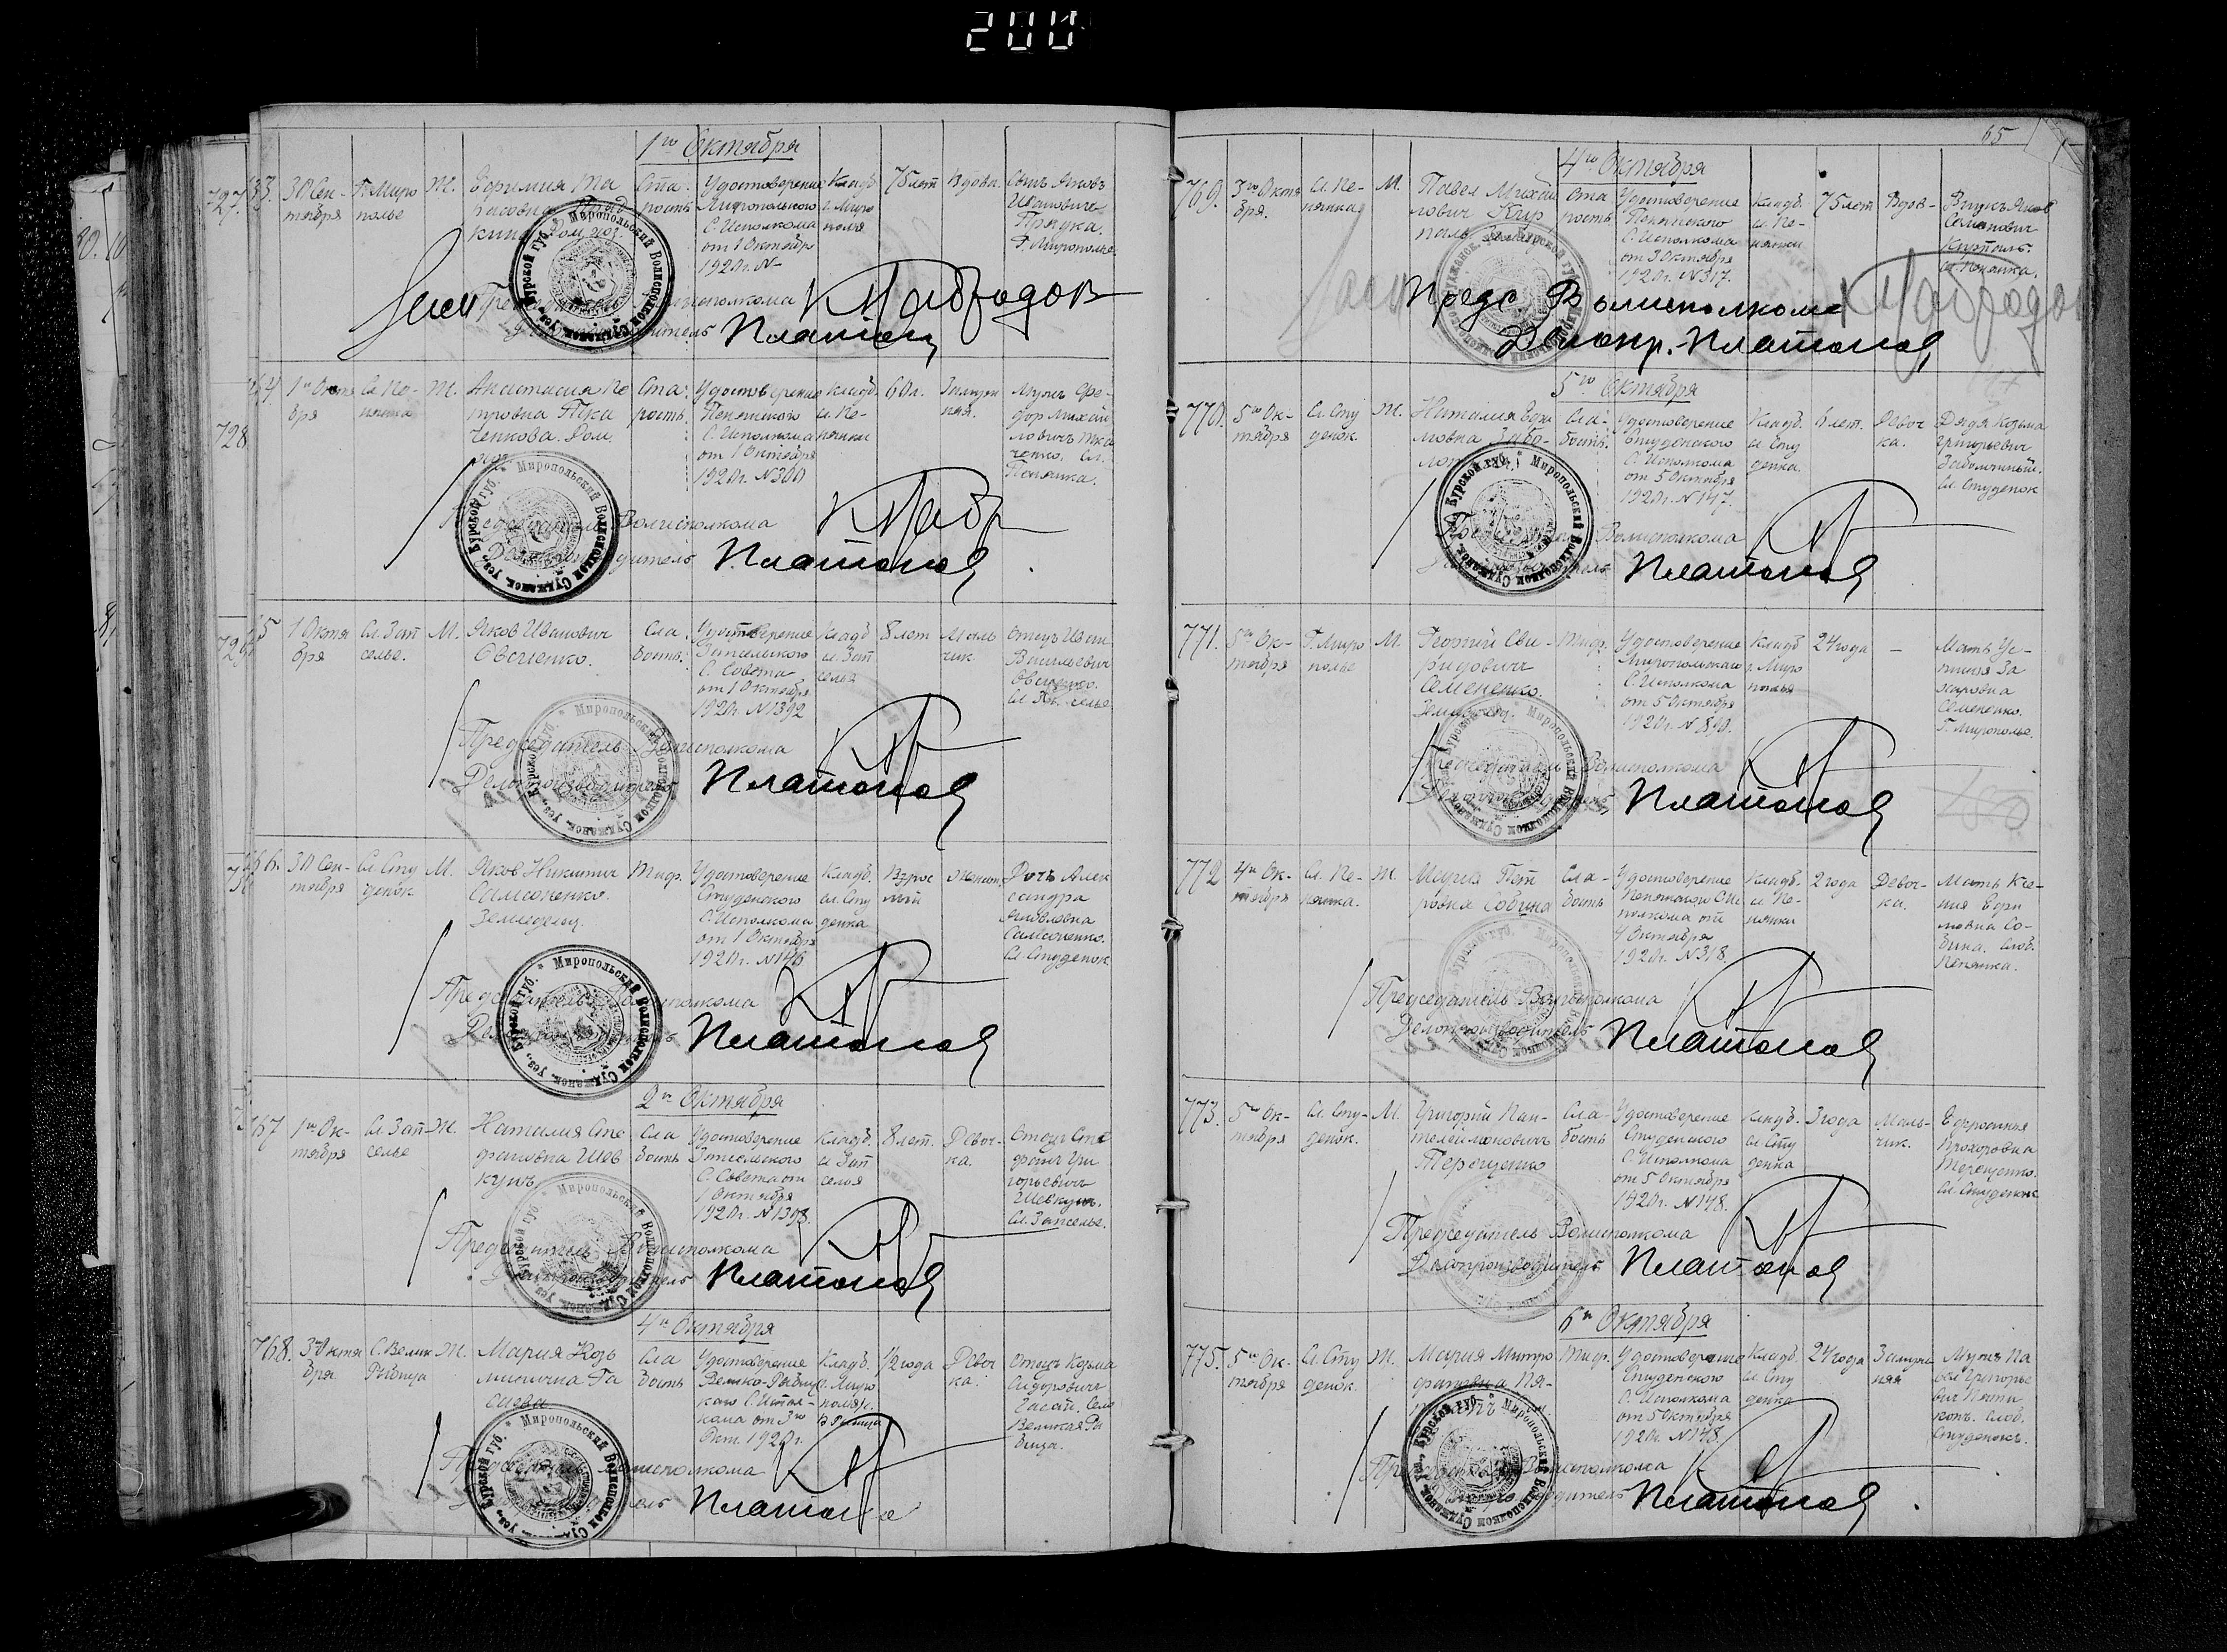 200
65
1го Октября
30 Сен-
тября
Миро
полье
Ж.
Ефимия Та
Ста
рость
Удостоверение
Миропольского
С. Исполкома
от 1 Октября
1920 г. №-
Кладб.
г. Миро
полья
75 лет
Вдова.
Сынъ Яковъ
Ивановичъ
Прядка.
Г. Мирополье
Платонов
728
1го Октя
бря
Сл. Пе-
нянка
Ж.
Анастасия Пе
тровна Тка
ченкова. Дом.
хоз.
Ста
рость
Удостоверение
Пенянского
С. Исполкома
от 1 Октября
1920 г. №300
Кладб.
сл. Пе-
нянки
60 л.
Замуж
няя.
Мужъ Фе-
дор Михай
ловичъ Тка
ченко. Сл.
Пенянка.
Председатель Волисполкома
Делопроизводитель Платонов
729
1 Октя
бря
Сл. Зап
селье.
М.
Яков Иванович
Овсиенко.
Сла
бость.
Удостоверение
Запсельского
С. Совета
от 1 Октября
1920 г. №1392
Кладб
сл. Зап
селья
8 лет
Маль
чик.
Отец Иван
Васильевич
Овсиенко.
Сл. Зап. селье
Председатель Волисполкома
Делопроизводитель Платонов
30 Сен-
тября
Сл. Сту
денок
М.
Яков Никитич
Самсоненко.
Земледелец.
Тиф.
Удостоверение
Студенского
С. Исполкома
от 1 Октября
1920 г. №146
Кладб.
сл. Сту
денка
Взрос
лый
женат.
Дочь Алек
сандра
Яковлевна
Самсоненко.
Сл. Студенок
Председатель Волисполкома
Делопроизводитель Платонов
2го Октября
1го Ок-
тября
Сл. Зап-
селье
Ж.
Наталия Сте
фановна Шев
кунъ
Сла
бость
Удостоверение
Запсельского
С. Совета от
1 Октября
1920 г. №1398.
Кладб.
сл. Зап
селья
8 лет.
Девоч-
ка.
Отецъ Сте
фанъ Гри
горьевичъ
Шевкунъ.
Сл. Запселье.
Председатель Волисполкома
Делопроизводитель Платонов
4го Октября
768.
3го Октя
бря
С. Велик
Рыбица
Ж.
Мария Козь
минична Га
Сла
бость
Удостоверение
Велико-Рыбиц
каго С. Испол-
кома от 3го
Окт. 1920 г.
Кладб.
1/2 года
Девоч
ка.
Отецъ Козьма
Сидоровичъ
Гасай. Село
Великая Ры
бица.
Председатель Волисполкома
Делопроизводитель Платонов
4го Октября
769.
3го Октя
бря.
Сл. Пе-
нянка
М.
Павел Михай
лович
Ста
рость
Удостоверение
Пенянского
С. Исполкома
от 3 Октября
1920 г. №317.
Кладб.
сл. Пе-
нянки
75 лет
Вдов-
Внукъ Яков
Семенович
сл. Пенянка.
Предс Волисполкома
Делопр. Платонов
5го Октября
770.
5го Ок-
тября
Сл. Сту
денок.
Ж.
Наталия Ефи
мовна
Сла-
бость.
Удостоверение
Студенского
С. Исполкома
от 5 Октября
1920 г. №147.
Кладб.
сл. Сту
денка.
Девоч
ка.
Дядя Козьма
Григорьевич
Сл. Студенок
Председатель Волисполкома
Делопроизводитель Платонов
771.
5го Ок-
тября
Г. Миро
полье
М.
Георгий Сви-
ридович
Семененко.
Земледелец.
Тиф.
Удостоверение
Миропольскаго
С. Исполкома
от 5 Октября
1920 г. №840.
Кладб
г. Миро
полья
24 года
-
Мать Ус-
тиния За
харовна
Семененко.
Г. Мирополье.
Председатель Волисполкома
Делопроизводитель Платонов
772
4го Ок-
тября
Сл. Пе-
нянка.
Ж.
Мария Пет
ровна Собина
Сла-
бость
Удостоверение
Пенянского С. Ис
полкома от
4 Октября
1920 г. №318.
Кладб.
сл. Пе-
нянки
2 года
Девоч-
ка.
Мать Ксе-
ния Ефи
мовна Со-
бина. Слоб.
Пенянка.
Председатель Волисполкома
Делопроизводитель Платонов
773.
5го Ок-
тября
Сл. Сту-
денок.
М.
Григорий Пан-
телеймоновичъ
Терещенко
Сла-
бость
Удостоверение
Студенского
С. Исполкома
от 5 Октября
1920 г. №148.
Кладб.
сл. Сту
денка
3 года
Маль-
чик.
Ефросиния
Прохоровна
Терещенко.
Сл. Студенок
Председатель Волисполкома
Делопроизводитель Платонов
6го Октября
775.
5го Ок-
тября
Сл. Сту
денок.
Ж.
Мария Митро
фановна
Тиф.
Удостоверение
Студенского
С. Исполкома
от 5 Октября
1920 г. №148
Кладб.
сл. Сту
денка
24 года
Замуж-
няя
Мужъ Па
Григорье
вич
Слоб.
Студенокъ.
Председатель Волисполкома
Делопроизводитель Платонов
Миропольский Волисполком Суджанск. уез., Курской губ.